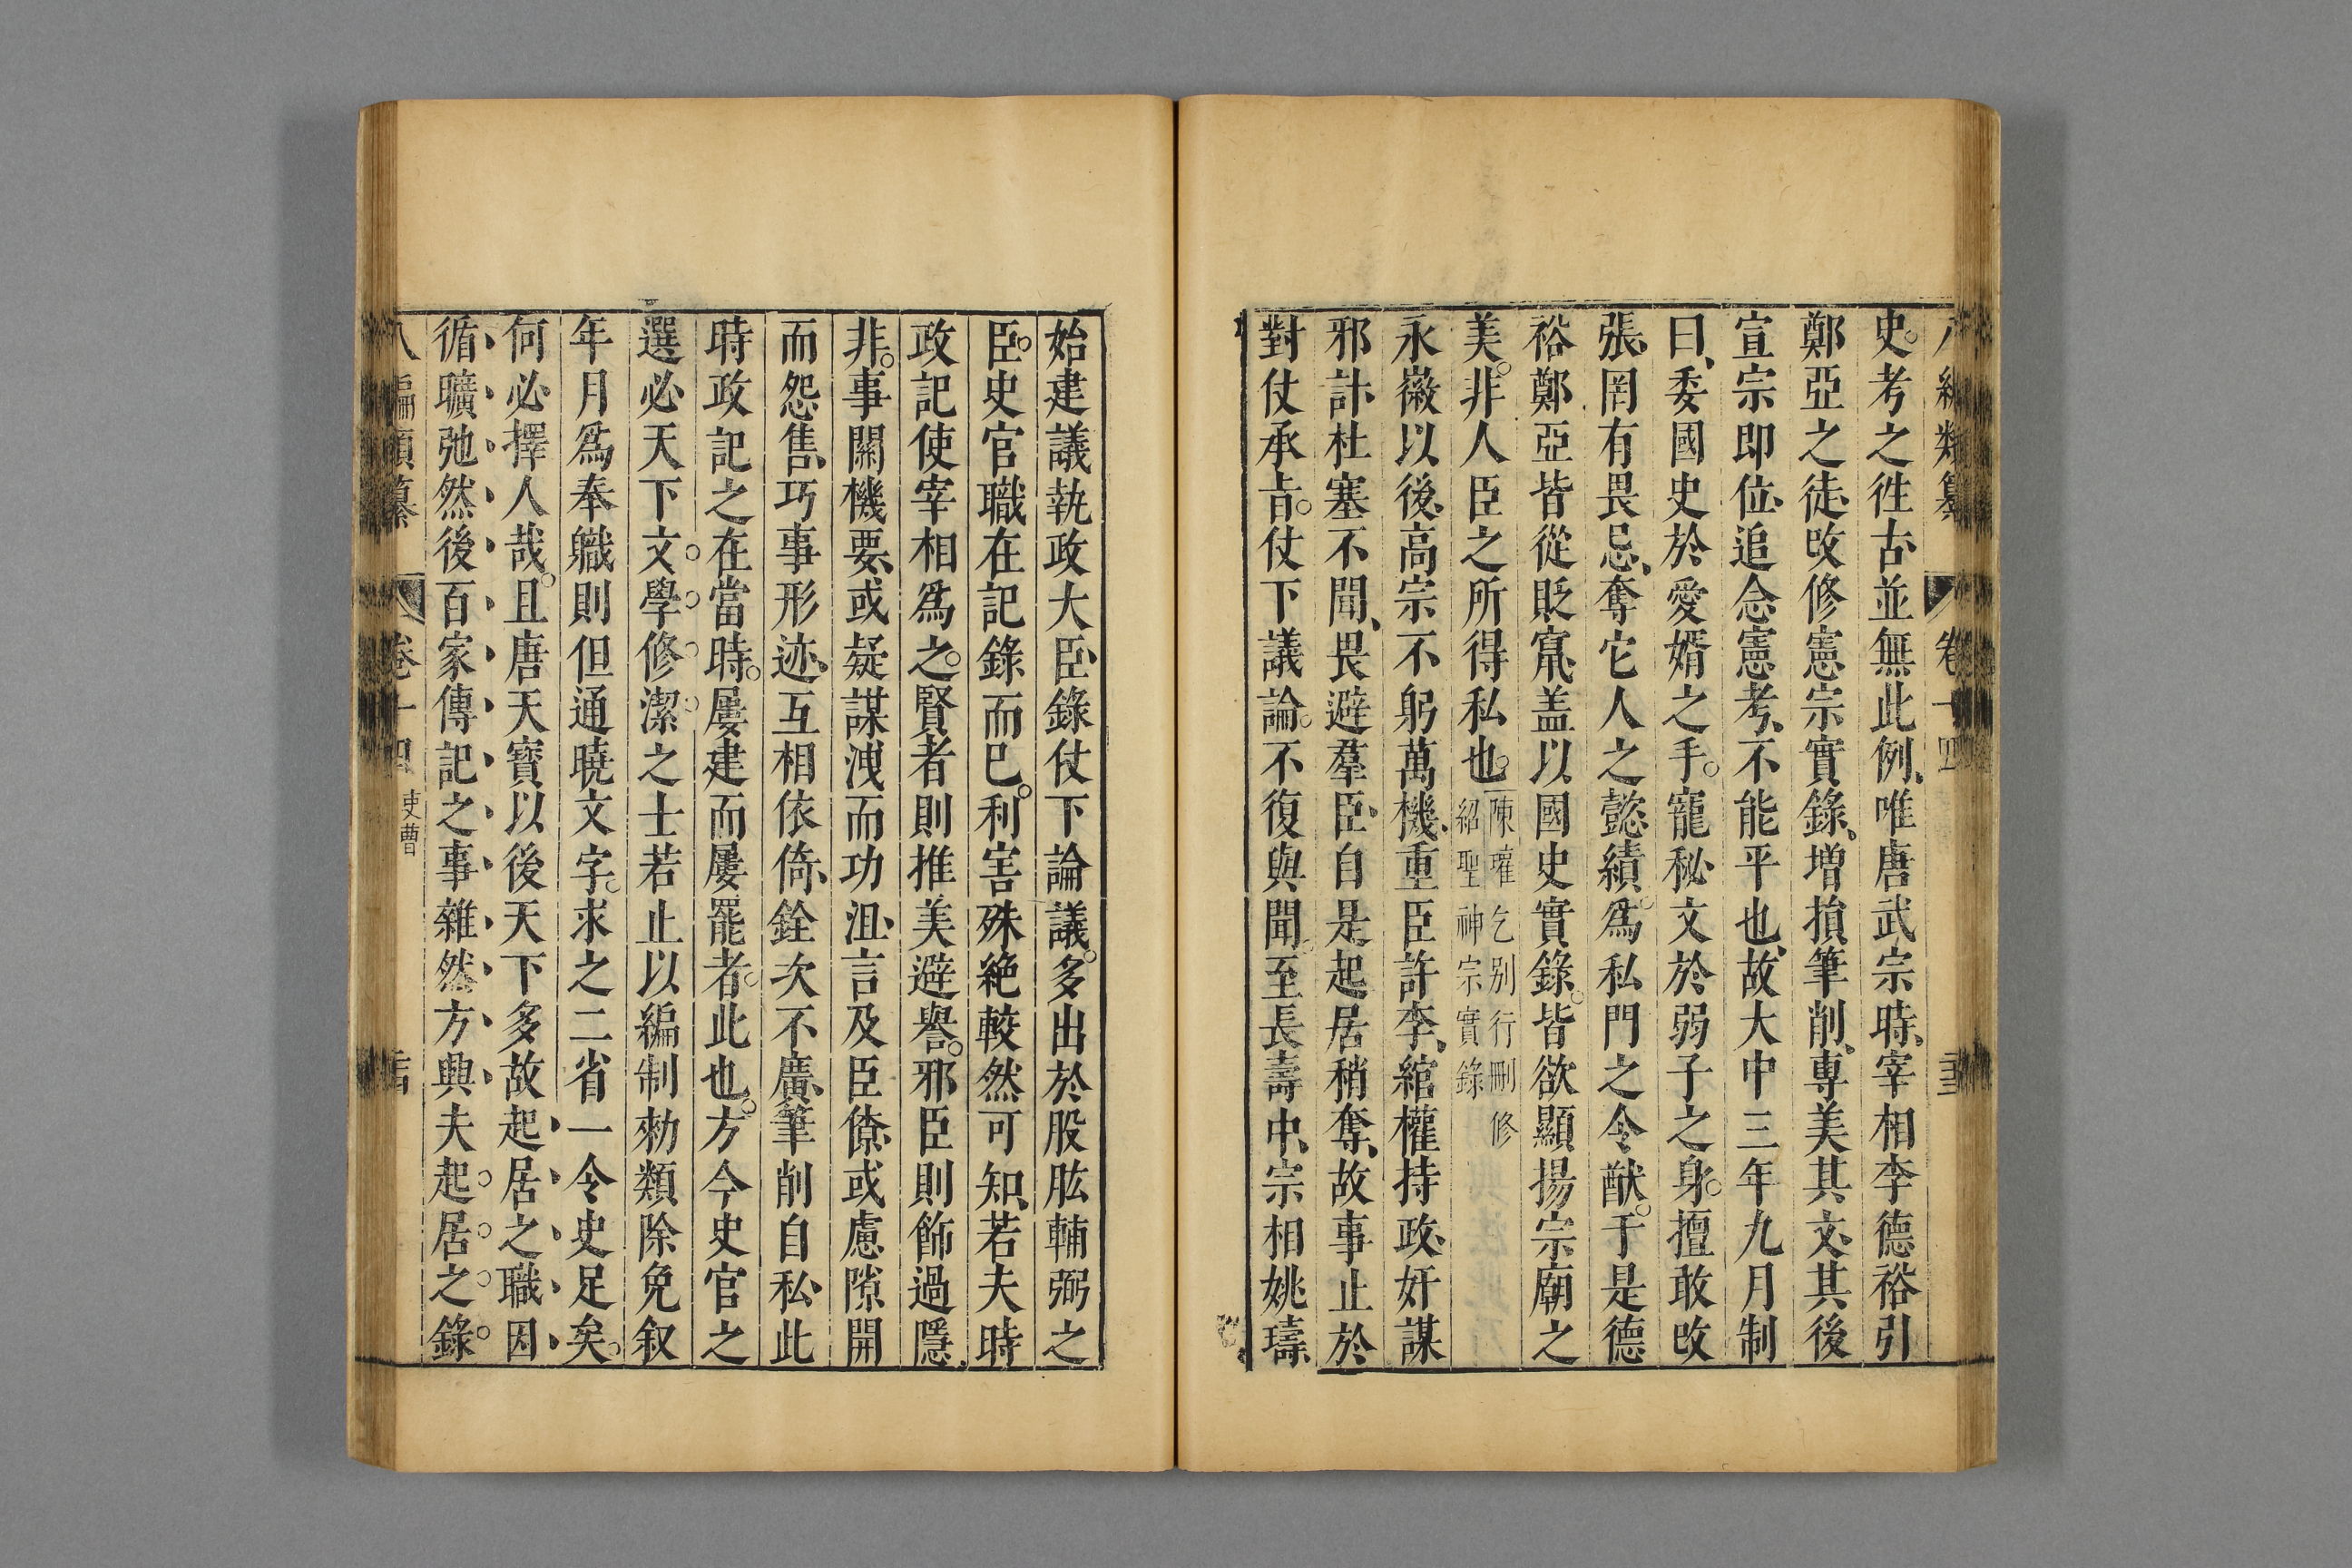 史。考之徃古、並無此例、唯唐武宗時、宰相李德裕引
鄭亞之徒、改修憲宗實錄、増損筆削、専美其文、其後
宣宗即位、追念憲考、不能平也、故大中三年九月制
曰、委國史於愛婿之手。寵秘文於弱子之身。擅敢改
張、罔有畏忌、奪它人之懿績、爲私門之令猷。于是德
裕鄭亞皆從貶竄、盖以國史實錄。皆欲顯揚宗廟之
美。非人臣之所得私也。
陳瓘乞别行刪修
紹聖神宗實錄
永徽以後、高宗不躬萬機、重臣許李、綰權持政、奸謀
邪計、杜塞不聞、畏避羣臣、自是起居稍奪、故事止於
對仗承旨。仗下議論。不復與聞。至長壽中、宗相姚璹、
始建議執政大臣、錄仗下論議。多出於股肱輔弼之
臣。史官職在記錄而已。利害殊絶較然可知、若夫時
政記使宰相爲之。賢者則推美避譽。邪臣則飾過隱
非。事關機要、或疑謀洩而功沮、言及臣僚、或慮隙開
而怨售、巧事形迹、互相依倚、銓次不廣、筆削自私、此
時政記之在當時。屢建而屢罷者。此也。方今史官之
選必天下文學修潔之士若止以編制勑類除免叙
年月爲奉職則但通曉文字。求之二省一令史足矣。
何必擇人哉。且唐天寳以後天下多故起居之職因
循曠弛然後百家傳記之事雜然方興夫起居之錄。
八編類纂 卷十四 吏曹